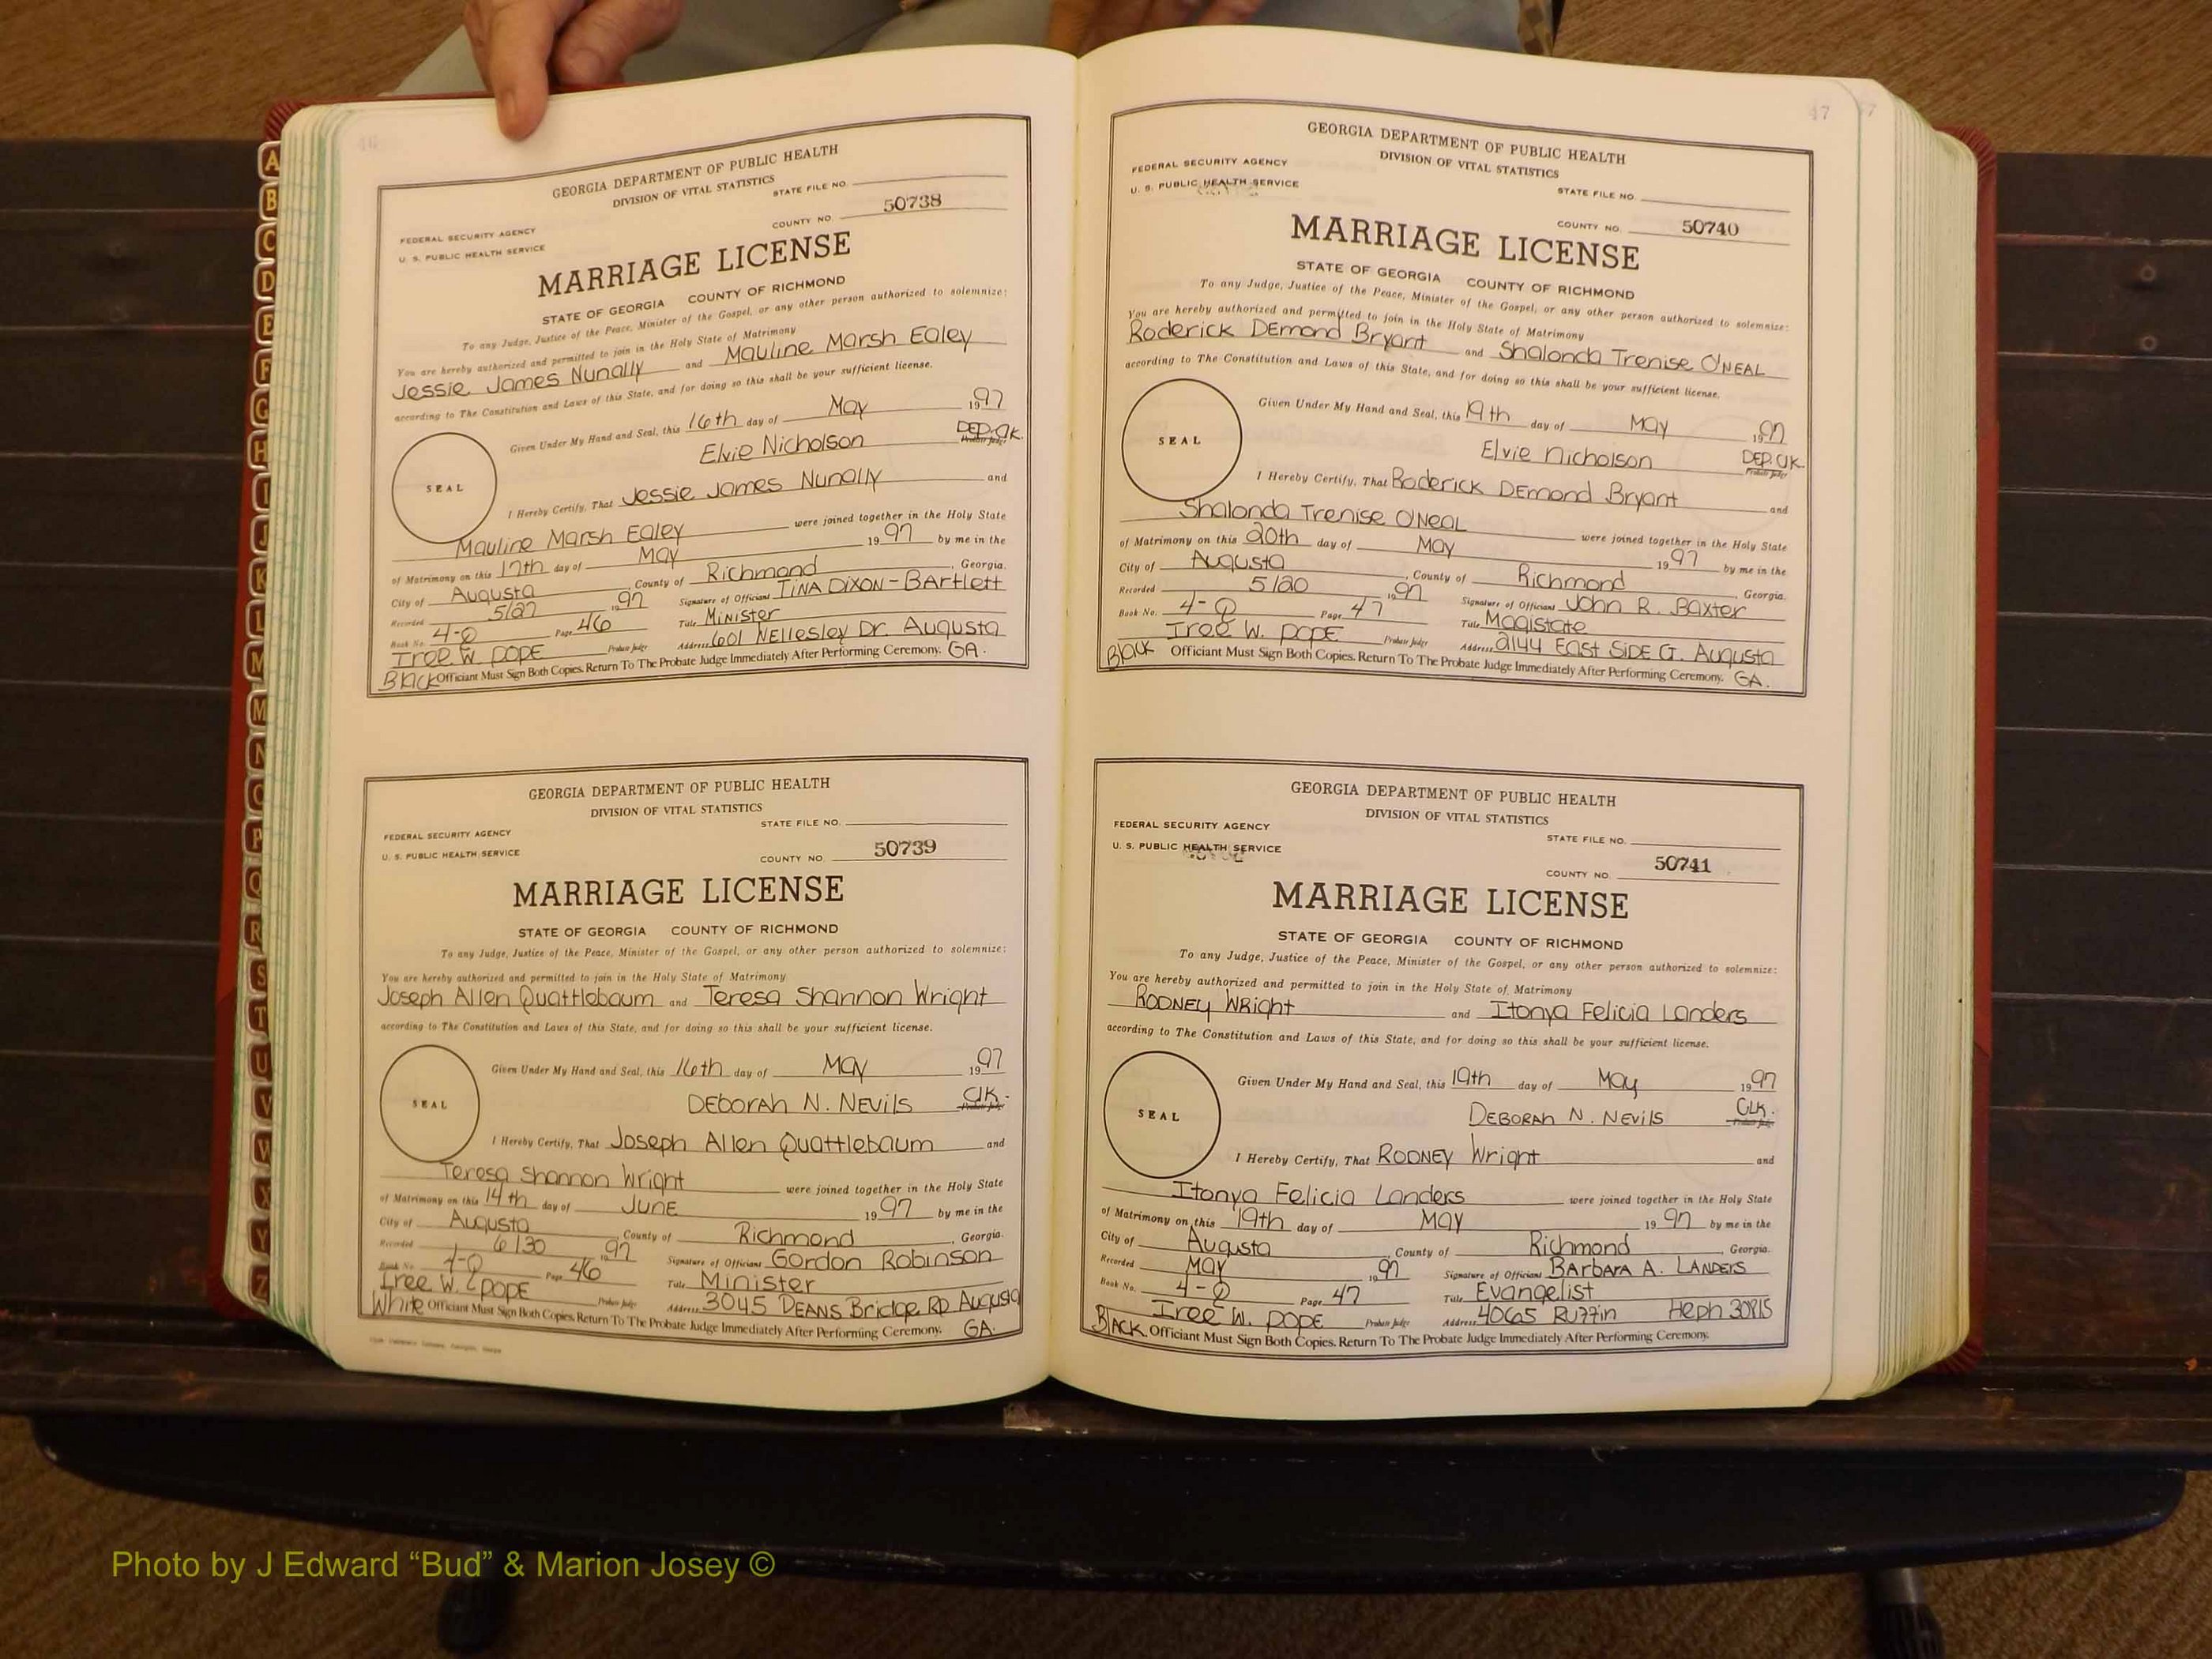 46
GEORGIA DEPARTMENT OF PUBLIC HEALTH
DIVISION OF VITAL STATISTICS
STATE FILE NO.
COUNTY NO. 50738
FEDERAL SECURITY AGENCY
U. S. PUBLIC HEALTH SERVICE
MARRIAGE LICENSE
STATE OF GEORGIA COUNTY OF RICHMOND
To any Judge, Justice of the Peace, Minister of the Gospel, or any other person authorized to solemnize:
You are hereby authorized and permitted to join in the Holy State of Matrimony
Jessie James Nunally and Mauline Marsh Ealey
according to The Constitution and Laws of this State, and for doing so this shall be your sufficient license.
Given Under My Hand and Seal, this 16th day of May 1997
Elvie Nicholson DEP. Clk. Probate Judge
SEAL
I Hereby Certify, That Jessie James Nunally and
Mauline Marsh Ealey were joined together in the Holy State
of Matrimony on this 17th day of May 1997 by me in the
City of Augusta County of Richmond, Georgia.
Recorded 5/27 1997 Signature of Officiant TiNA DIXON-BArtlett
Book No. 4-Q Page 46 Title MiNister
Iree W. POPE Probate Judge Address 601 Wellesley Dr. Augusta
Black Officiant Must Sign Both Copies. Return To The Probate Judge Immediately After Performing Ceremony. GA.
GEORGIA DEPARTMENT OF PUBLIC HEALTH
DIVISION OF VITAL STATISTICS
STATE FILE NO.
FEDERAL SECURITY AGENCY
U. S. PUBLIC HEALTH SERVICE
COUNTY NO. 50739
MARRIAGE LICENSE
STATE OF GEORGIA COUNTY OF RICHMOND
To any Judge, Justice of the Peace, Minister of the Gospel, or any other person authorized to solemnize:
You are hereby authorized and permitted to join in the Holy State of Matrimony
Joseph Allen Quattlebaum and Teresa Shannon Wright
according to The Constitution and Laws of this State, and for doing so this shall be your sufficient license.
Given Under My Hand and Seal, this 16th day of MAY 1997
DEBORAH N. NEVILS Clk. Probate Judge
SEAL
I Hereby Certify, That Joseph Allen Quattlebaum and
Teresa Shannon Wright were joined together in the Holy State
of Matrimony on this 14th day of JUNE 1997 by me in the
City of Augusta County of Richmond, Georgia.
Recorded 6/30 1997 Signature of Officiant Gordon Robinson
Book No. 4-Q Page 46 Title Minister
Iree W. POPE Probate Judge Address 3045 DEANS Bridge RD Augusta
White Officiant Must Sign Both Copies. Return To The Probate Judge Immediately After Performing Ceremony. GA.
47
GEORGIA DEPARTMENT OF PUBLIC HEALTH
DIVISION OF VITAL STATISTICS
FEDERAL SECURITY AGENCY
U. S. PUBLIC HEALTH SERVICE
STATE FILE NO.
COUNTY NO. 50740
MARRIAGE LICENSE
STATE OF GEORGIA COUNTY OF RICHMOND
To any Judge, Justice of the Peace, Minister of the Gospel, or any other person authorized to solemnize:
You are hereby authorized and permitted to join in the Holy State of Matrimony
Roderick DEmond Bryant and Shalonda Trenise O'NEAL
according to The Constitution and Laws of this State, and for doing so this shall be your sufficient license.
Given Under My Hand and Seal, this 19th day of May 1997
Elvie Nicholson DEP. Clk. Probate Judge
SEAL
I Hereby Certify, That Roderick DEmond Bryant and
Shalonda Trenise O'NEAL were joined together in the Holy State
of Matrimony on this 20th day of May 1997 by me in the
City of Augusta, County of Richmond, Georgia.
Recorded 5/20 1997 Signature of Officiant John R. Baxter
Book No. 4-Q Page 47 Title Magistate
Iree W. POPE Probate Judge Address 2144 East SIDE Ct. Augusta
Black Officiant Must Sign Both Copies. Return To The Probate Judge Immediately After Performing Ceremony. GA.
GEORGIA DEPARTMENT OF PUBLIC HEALTH
DIVISION OF VITAL STATISTICS
FEDERAL SECURITY AGENCY
U. S. PUBLIC HEALTH SERVICE
STATE FILE NO.
COUNTY NO. 50741
MARRIAGE LICENSE
STATE OF GEORGIA COUNTY OF RICHMOND
To any Judge, Justice of the Peace, Minister of the Gospel, or any other person authorized to solemnize:
You are hereby authorized and permitted to join in the Holy State of Matrimony
RODNEY WRight and Itonya Felicia Landers
according to The Constitution and Laws of this State, and for doing so this shall be your sufficient license.
Given Under My Hand and Seal, this 19th day of May 1997
DEBORAH N. NEVILS CLK. Probate Judge
SEAL
I Hereby Certify, That RODNEY Wright and
Itonya Felicia Landers were joined together in the Holy State
of Matrimony on this 19th day of MAY 1997 by me in the
City of Augusta, County of Richmond, Georgia.
Recorded MAY 1997 Signature of Officiant BARbARA A. LANDERS
Book No. 4-Q Page 47 Title Evangelist
Iree W. POPE Probate Judge Address 4065 Heph 30815
BlACK Officiant Must Sign Both Copies. Return To The Probate Judge Immediately After Performing Ceremony.
A
B
C
D
E
F
G
H
I
J
K
L
M
M
N
O
P
Q
R
S
T
U
V
W
X
Y
Z
Photo by J Edward “Bud” & Marion Josey ©